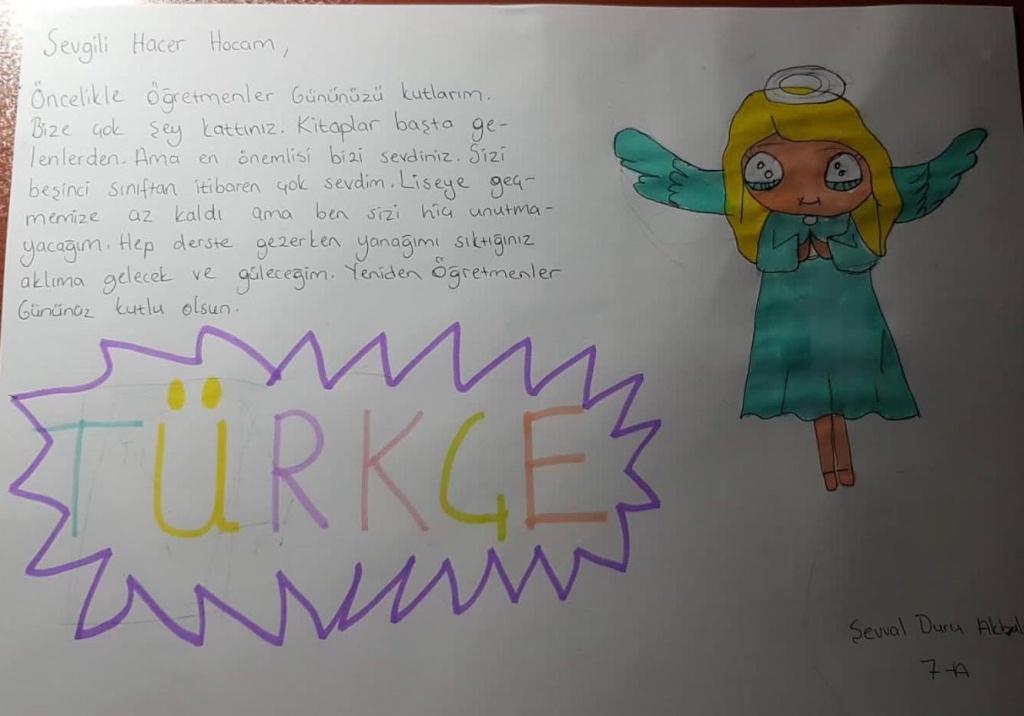 Sevgili Hacer Hocam,
Öncelikle Öğretmenler Gününüzü kutlarım.
Bize çok şey kattınız. Kitaplar başta ge-
lenlerden. Ama en önemlisi bizi sevdiniz. Sizi
beşinci sınıftan itibaren çok sevdim. Liseye geç-
memize az kaldı ama ben sizi hiç unutma-
yacağım. Hep derste gezerken yanağımı sıktığınız
aklıma gelecek ve güleceğim. Yeniden Öğretmenler
Gününüz kutlu olsun.
TÜRKÇE
Şevval Duru
7-A